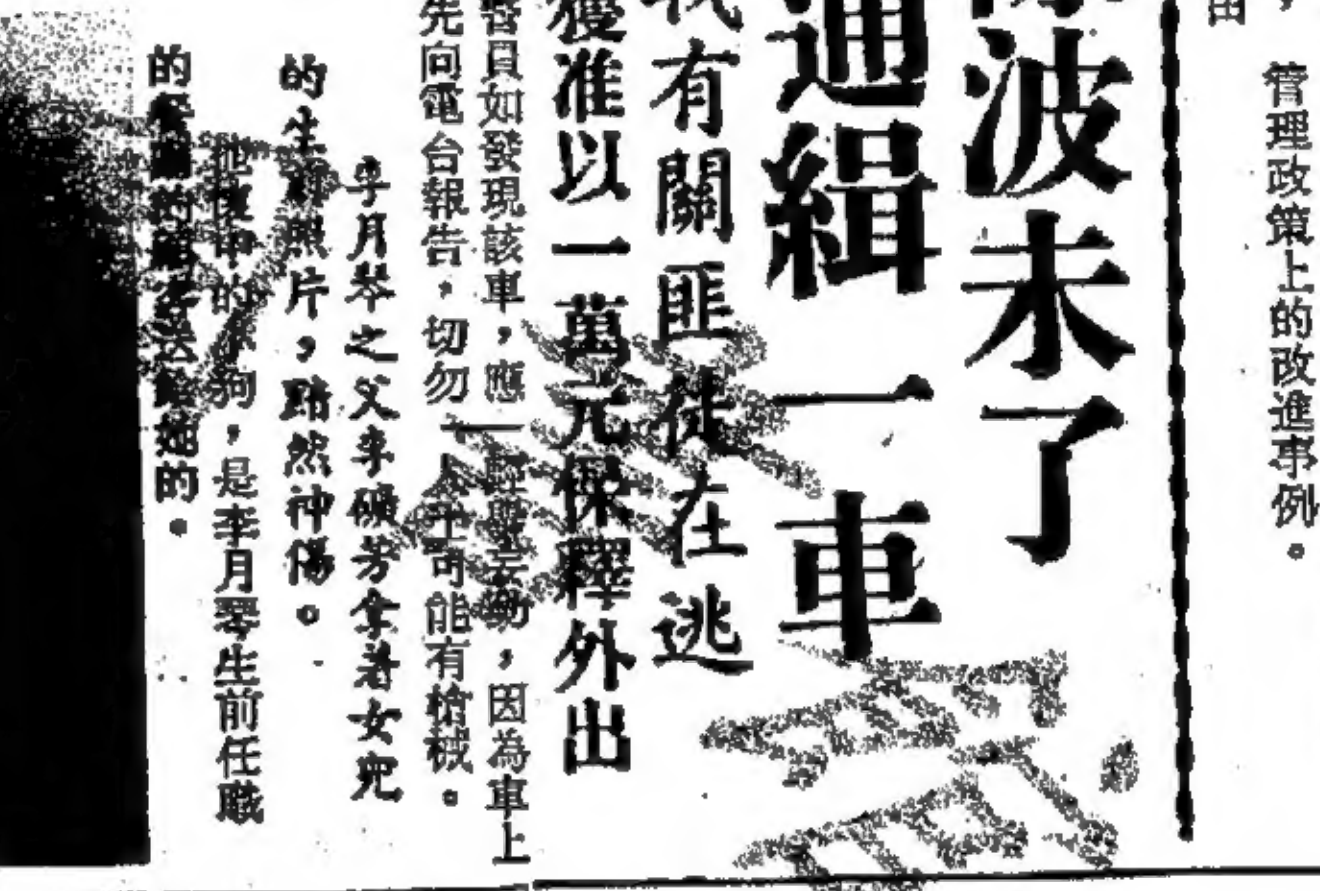 管理政策上的改進事例。
波未了
通緝一車
有關匪徒在逃
獲准以一萬元保釋外出
員如發現該車,應
先向電台報告,切勿
妄動,因為車上
人士可能有槍械。
李月琴之父李碩芳拿着女兒
的生照片,黯然神傷。
他懷中的小狗,是李月琴生前任職
的送給她的。